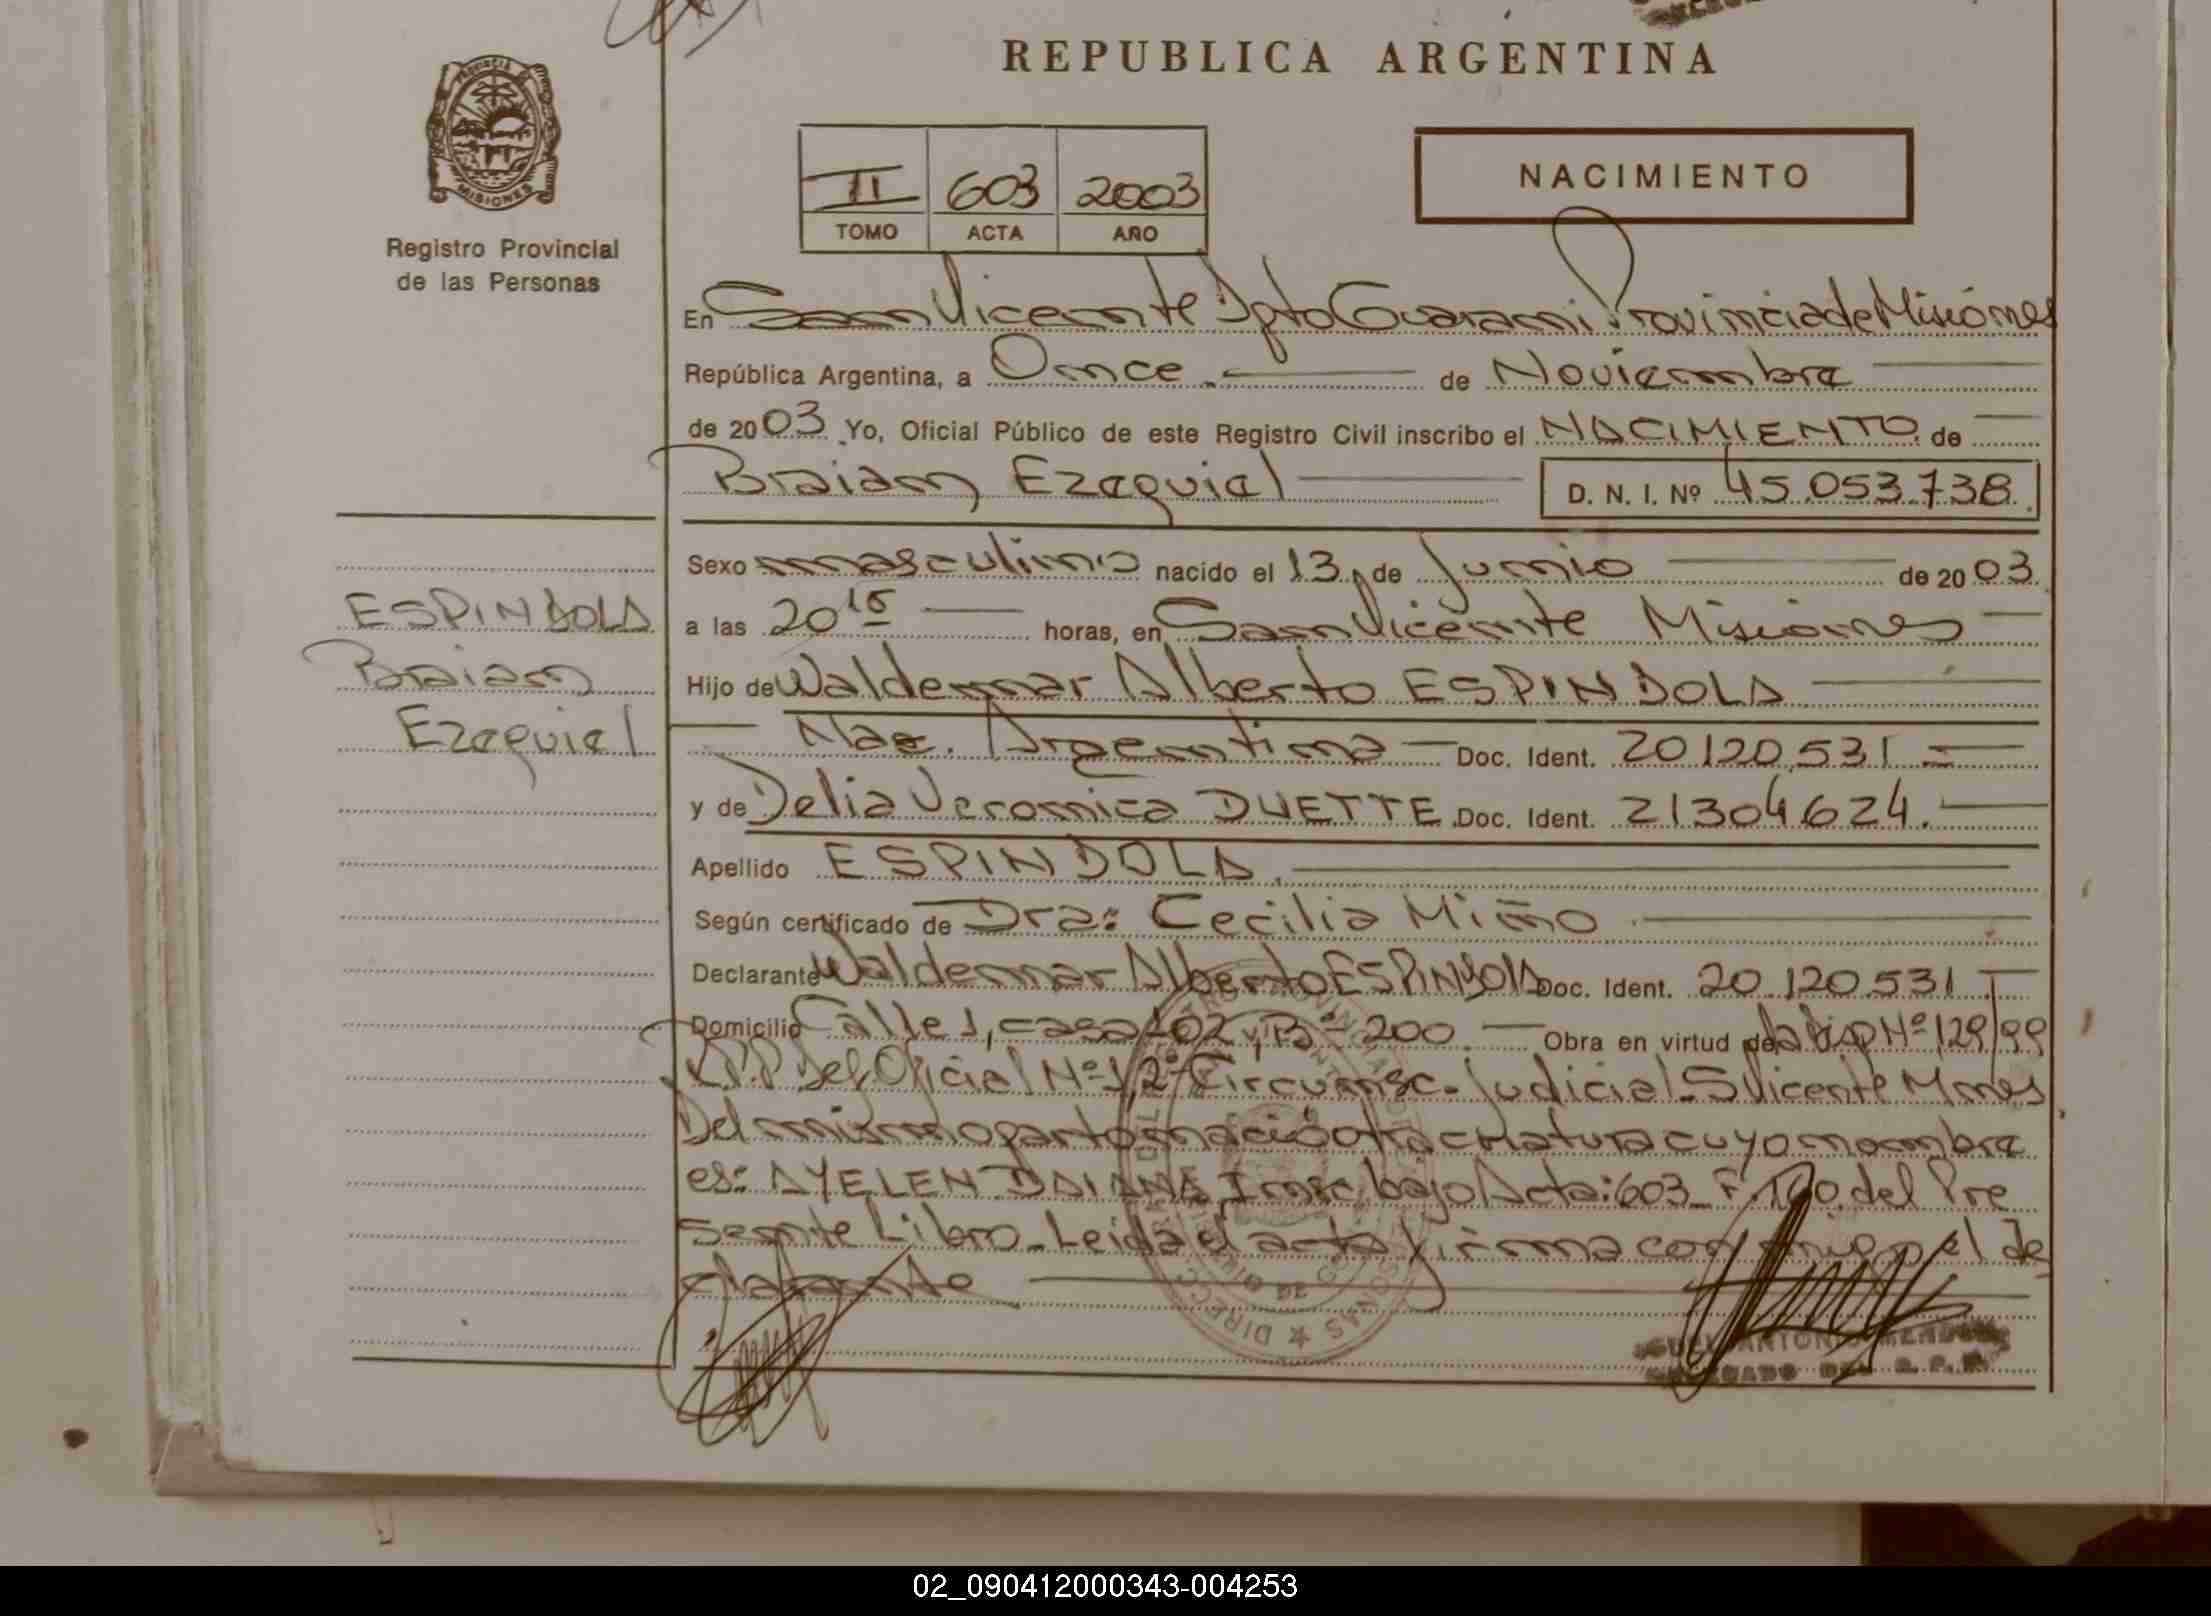 REPUBLICA ARGENTINA
PROVINCIA DE
MISIONES
Registro Provincial
de las Personas
II 603 2003
TOMO ACTA AÑO
NACIMIENTO
En San Vicente Dpto Guarani Provincia de Misiones
República Argentina, a Once. de Noviembre
de 2003 Yo, Oficial Público de este Registro Civil inscribo el NACIMIENTO de
Braian Ezequiel D. N. I. Nº 45.053.738.
Sexo masculino nacido el 13 de Junio de 2003
ESPINDOLA
Braian
Ezequiel
a las 20 15 horas, en San Vicente Misiones
Hijo de Waldemar Alberto ESPINDOLA
Nac. Argentina Doc. Ident. 20120.531
y de Delia Veronica DUETTE Doc. Ident. 21304624.
Apellido ESPINDOLA.
Según certificado de Dra: Cecilia Miño
Declarante Waldemar Alberto ESPINDOLA Doc. Ident. 20.120.531
Domicilio Calle 1, casa 102 Vº Bº 200. Obra en virtud de la Disp Nº 129/99
R.P.P. Del. Oficial Nº 1, 2ª Circunsc. Judicial. S Vicente Mnes
Del mismo parto nació otra criatura cuyo nombre
es: AYELEN DAIANA Insc. bajo Acta: 603 F. del Pre
sente Libro. Leida el acta firma conmigo el de
clarante
ANTONIO MENDOZA
R. P. P.
02_090412000343-004253